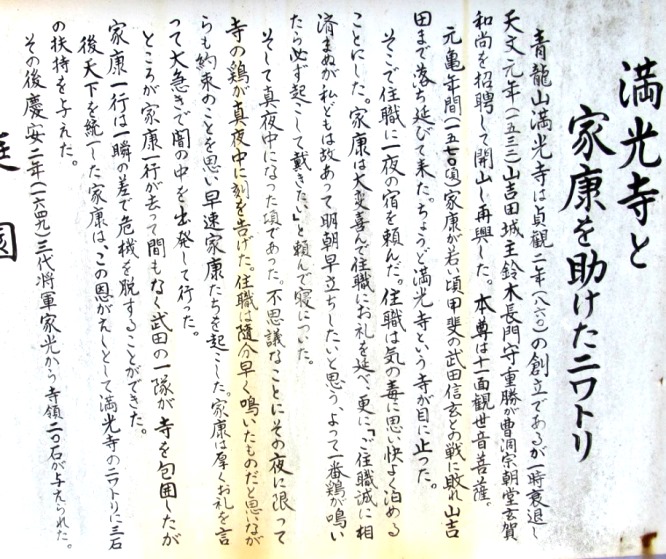 満光寺と
家康を助けたニワトリ
青龍山満光寺は貞観二年(八六〇)の創立であるが一時衰退し
天文元年(一五三二)山吉田城主鈴木長門守重勝が曹洞宗朝堂玄賀
和尚を招聘して開山し再興した。本尊は十一面観世音菩薩。
元亀年間(一五七〇頃)家康が若い頃甲斐の武田信玄との戦に敗れ山吉
田まで落ち延びて来た。ちょうど満光寺という寺が目に止った。
そこで住職に一夜の宿を頼んだ。住職は気の毒に思い快よく泊める
ことにした。家康は大変喜んで住職にお礼を延べ、更に「ご住職誠に相
済まぬが私どもは故あって明朝早立ちしたいと思う、よって一番鶏が鳴い
たら必ず起こして戴きたい」と頼んで寝についた。
そして真夜中になった頃であった。不思議なことにその夜に限って
寺の鶏が真夜中に刻を告げた。住職は随分早く鳴いたものだと思いなが
らも約束のことを思い早速家康たちを起こした。家康は厚くお礼を言
って大急ぎで闇の中を出発して行った。
ところが家康一行が去って間もなく武田の一隊が寺を包囲したが
家康一行は一瞬の差で危機を脱することができた。
後天下を統一した家康は、この恩がえしとして満光寺のニワトリに三石
の扶持を与えた。
その後慶安二年(一六四九)三代将軍家光から寺領二〇石が与えられた。
庭園